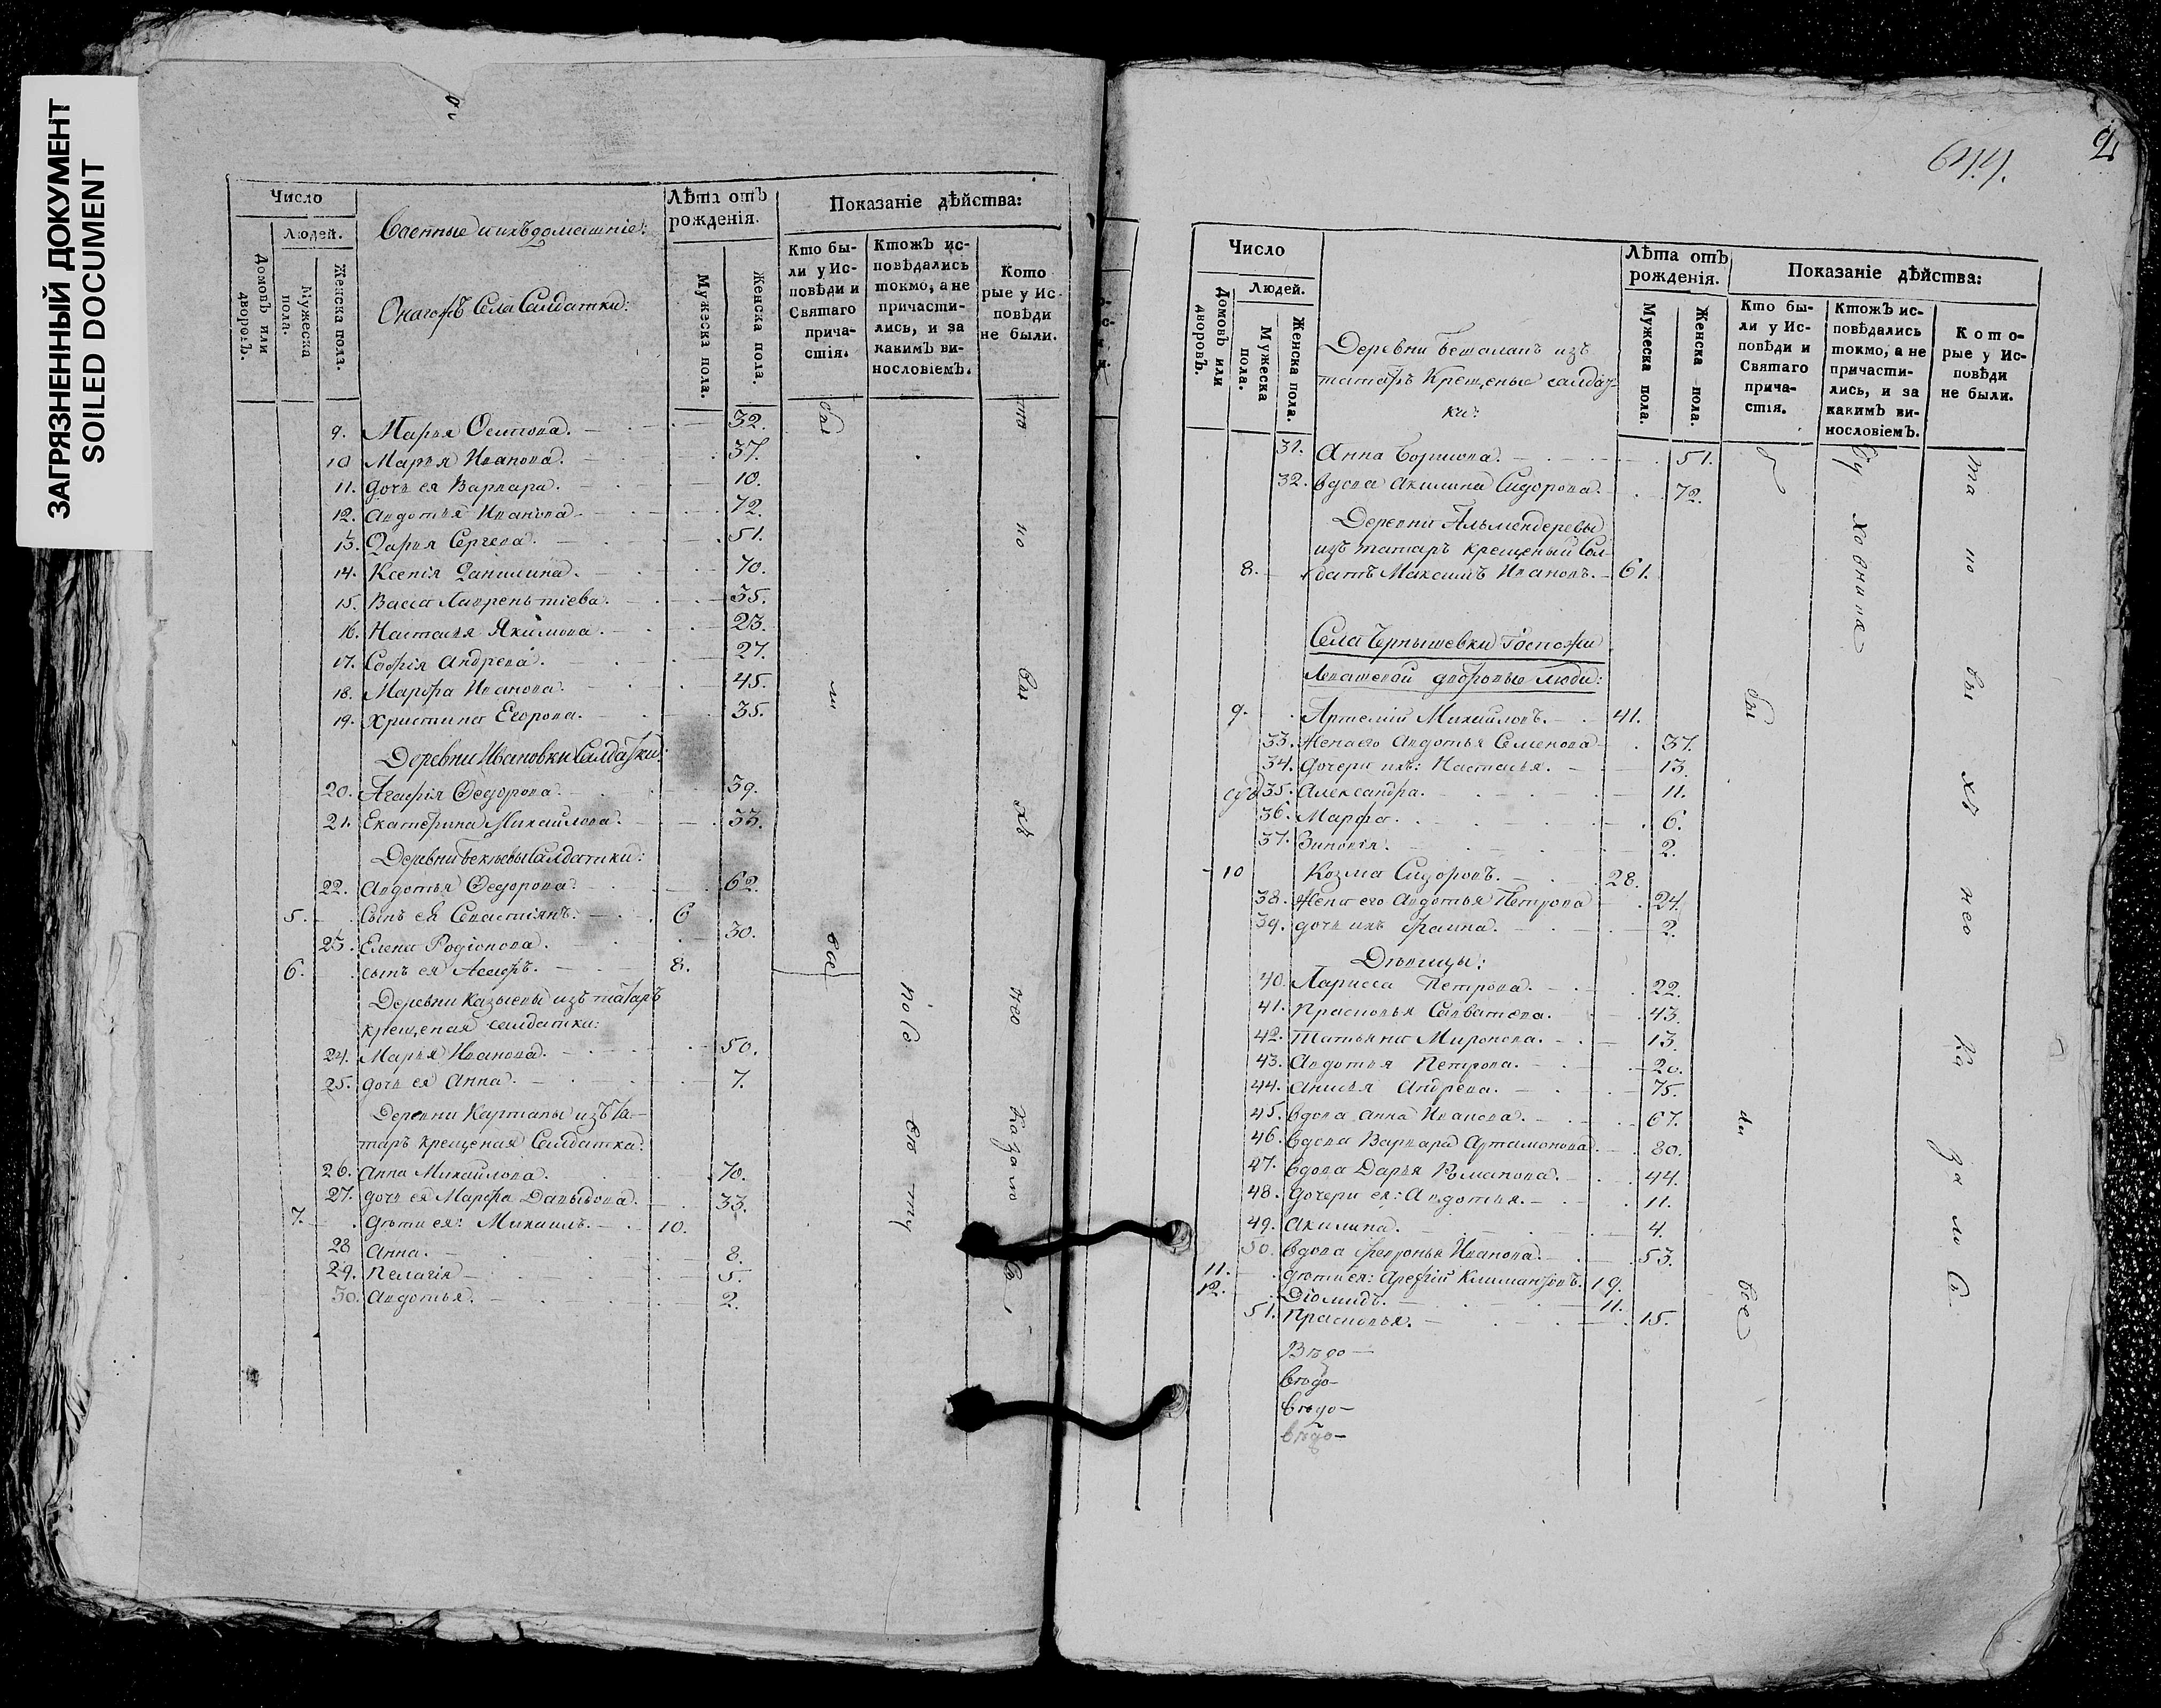 ЗАГРЯЗНЕННЫЙ ДОКУМЕНТ
SOILED DOCUMENT
Число
Людей.
Домовъ или дворовъ.
Мужеска пола.
Женска пола.
Военные и ихъ домашніе:
Онагожъ Села Салдатки:
Лѣта отъ рожденія.
Мужеска пола.
Женска пола.
Показаніе дѣйства:
Кто бы-
ли у Ис-
повѣди и
Святаго
прича-
стія.
Ктожъ ис-
повѣдались
токмо, а не
причасти-
лись, и за
какимъ ви-
нословіемъ.
Кото
рые у Ис-
повѣди
не были.
9. Марья Осипова. 32.
10 Марья Иванова. 37.
11. дочь ея Варвара. 10.
12. Авдотья Иванова. 72.
13. Дарья Сергева. 51.
14. Ксенія Данилина. 70.
15. Васса Лаврентіева. 35.
16. Наталья Якимова. 23.
17. Софія Андрева. 27.
18. Марфа Иванова. 45.
19. Христина Егорова. 35.
Деревни Ивановки Салдатки:
20. Агафія Федорова. 39.
21. Екатерина Михайлова. 33.
Деревни Бекѣевы Салдатки:
22. Авдотья Федорова. 62.
5. Сынъ ея Севастіянъ. 6
23. Елена Родіонова. 30.
6. сынъ ея 8.
Деревни Казыевы изъ татаръ
крещеная салдатка:
24. Марья Иванова. 50.
25. дочь ея Анна. 7.
Деревни изъ та-
таръ крещеная Салдатка:
26. Анна Михайлова. 70.
27. дочь ея Марфа Давыдова. 33.
7. дѣти ея: Михаилъ. 10.
28 Анна. 8.
29. Пелагія 5.
30. Авдотья. 2.
644.
Число
Людей.
Домовъ или дворовъ.
Мужеска пола.
Женска пола.
Деревни изъ
татаръ Крещеные салдат-
ки:
Лѣта отъ
рожденія.
Мужеска пола.
Женска пола.
Показаніе дѣйства:
Кто бы-
ли у Ис-
повѣди и
Святаго
прича-
стія.
Ктожъ ис-
повѣдались
токмо, а не
причасти-
лись, и за
какимъ ви-
нословіемъ.
Кото-
рые у Ис-
повѣди
не были.
31. Анна Борисова. 51.
32. вдова Акилина Сидорова. 72.
Деревни Альмендеревы
изъ татаръ крещеный Сал-
8. датъ Максимъ Ивановъ. 61.
Села Чернышевки Госпожи
дворовые люди:
9. Артемій Михайловъ. 41.
33. Жена его Авдотья Семенова 37.
34. дочери ихъ: Наталья. 13.
35. Александра. 11.
36. Марфа. 6.
37. Зиновія. 2.
10 Козма Сидоровъ. 28.
38. Жена его Авдотья Петрова 24.
39. дочь ихъ Фаина. 2.
Дѣвицы:
40. Лариса Петрова. 22.
41. Прасковья Савватева. 43.
42. Татьяна Миронова. 13.
43. Авдотья Петрова. 20.
44. Анисья Андрева. 75.
45. вдова Анна Иванова. 67.
46. вдова Варвара Артамонова 80.
47. вдова Дарья Романова. 44.
48. дочери ея: Авдотья. 11.
49. Акилина. 4.
50. вдова Февронья Иванова. 53.
11. дѣти ея: Арефій 19.
12. Діомидъ. 11.
51. Прасковья. 15.
Вѣдо—
вѣдо—
вѣдо—
вѣдо—